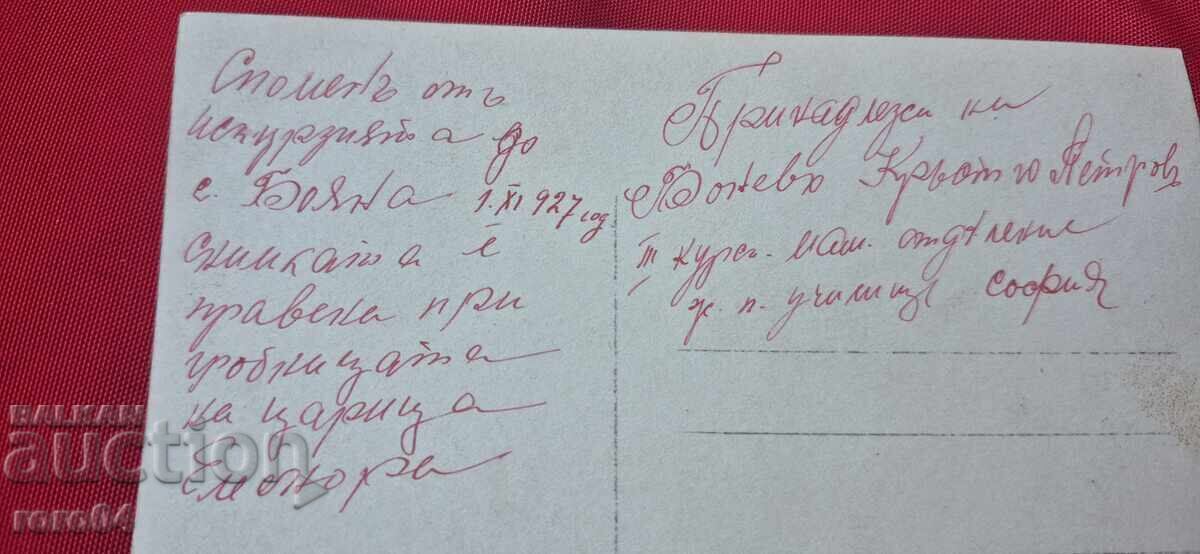 Споменъ отъ
искурзията до
с. Бояна 1.XI 927 год
снимката ѐ
правена при
гробницата
на царица
Елеонора
Принадлежи на
Кръстю Петровъ
III курсъ. отдѣление
ж. п. училище София
BALKAN
auction
roro64